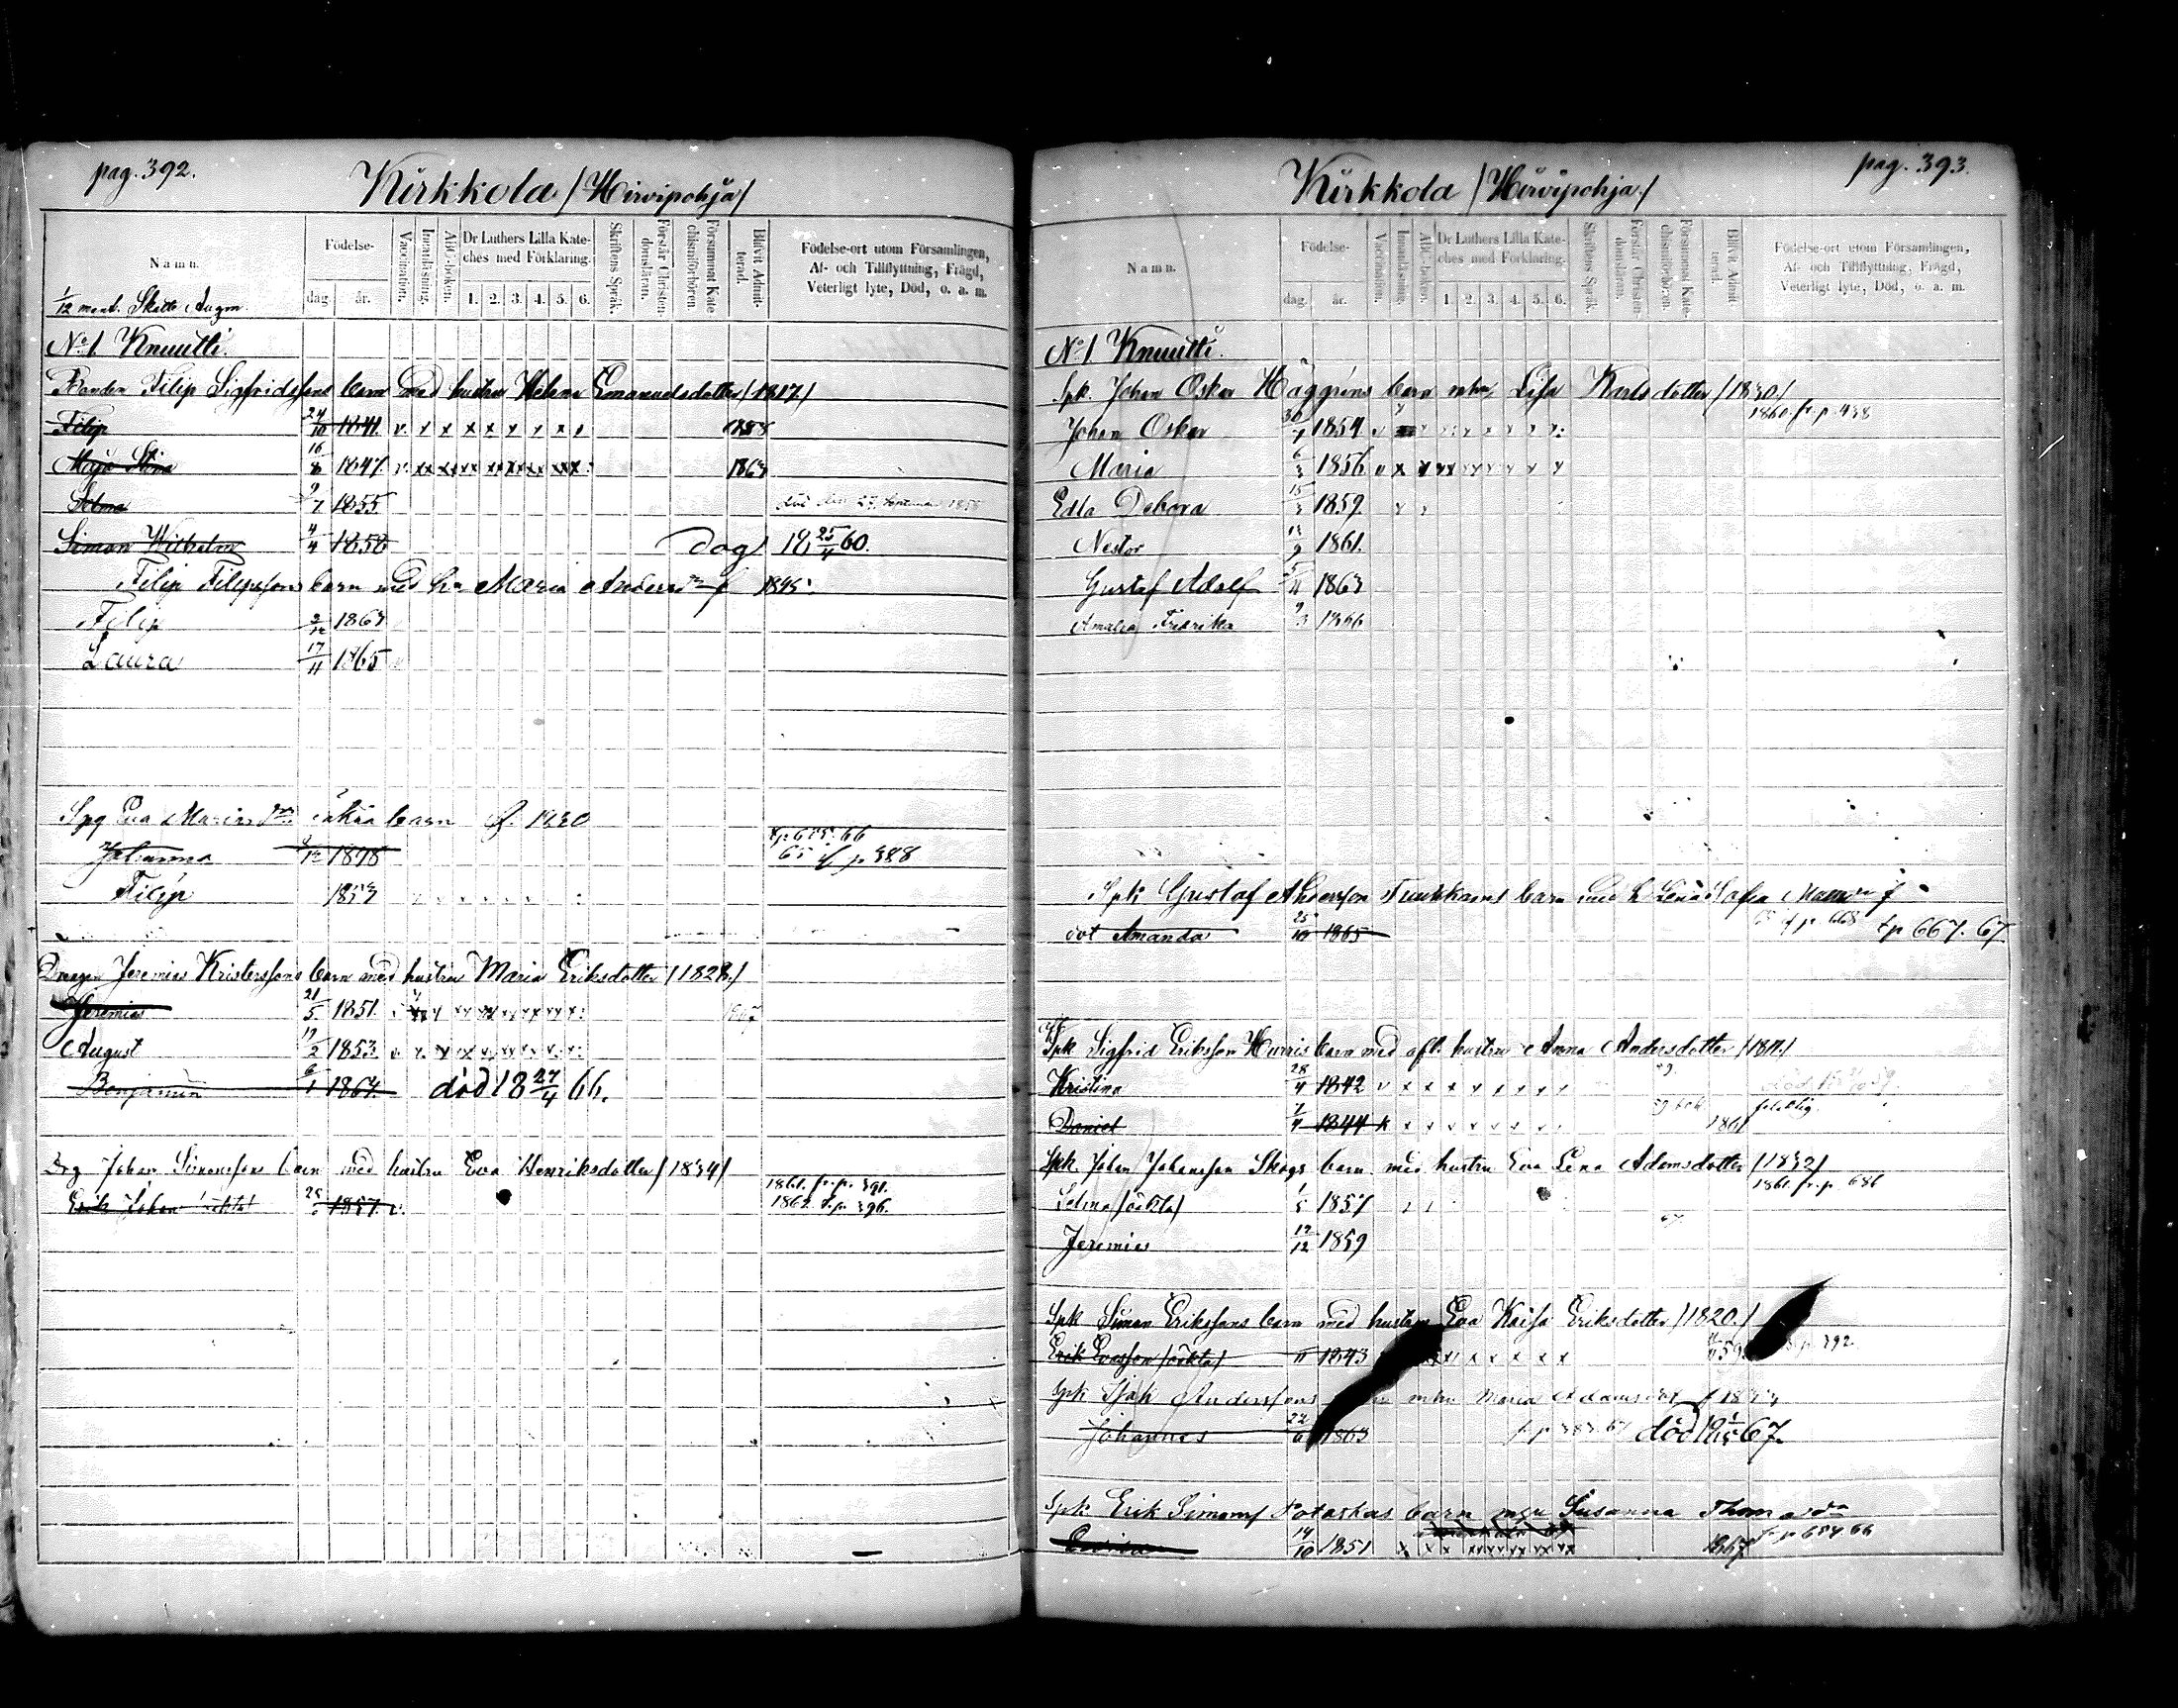 pag. 392.
Kirkkola /Hirvipohja/
Namn.
Födelse-
dag.
år.
Vaccination.
Innanläsning.
ABC-boken.
Dr Luthers Lilla Kate-
ches med Förklaring.
1. 2. 3. 4. 5. 6.
Skriftens Språk.
Förstår Christen-
domsläran.
Försummat Kate-
chismiförhören.
Blifvit Admit-
terad.
Födelse-ort utom Församlingen,
Af- och Tillflyttning, Frägd,
Veterligt lyte, Död, o. a. m.
1/12 mant. Skatte Augm.
No 1 Knuutti.
Bonden Filip Sigfridssons barn med hustru Helena Emanuelsdotter /1817./
Filip 24/10 1841. v x x x x x x x x 1858
Maja Stina 16/8 1847. v xx xx xx xx xx xx xx xx 1863
Selma 9/7 1855 död den 27 September 1858
Simon Wilhelm 4/4 1858 dog 18 25/4 60.
Filip Filipssons barn med hu Maria Andersdr f 1845.
Filip 2/12 1863
Laura 17/11 1865 v
Spg Eva Mariasdr oäkta barn f. 1820
Johanna 1848 65 f p 388
Filip 1853
Drängen Jeremias Kristerssons barn med hustru Maria Eriksdotter /1828./
Jeremias 21/5 1851. 1867
August 17/2 1853.
Benjamin 6/1 1864. död 18 27/4 66.
Drg Johan Simonssons barn med hustru Eva Henriksdotter /1834/
1861. fr. p. 391.
Erik Johan oäkta 1857. v. 1862. t. p. 396.
pag. 393.
Kirkkola /Hirvipohja/
Namn.
Födelse-
dag.
år.
Vaccination.
Innanläsning.
ABC-boken.
Dr Luthers Lilla Kate-
ches med Förklaring.
1. 2. 3. 4. 5. 6.
Skriftens Språk.
Förstår Christen-
domsläran.
Försummat Kate-
chismiförhören.
Blifvit Admit-
terad.
Födelse-ort utom Församlingen,
Af- och Tillflyttning, Frägd,
Veterligt lyte, Död, o. a. m.
No 1 Knuutti.
Spk. Johan Oskar Häggrens barn mhu Lisa Karlsdotter /1830/
1860. fr. p. 438
Johan Oskar 30/7 1854
Maria 6/3 1856
Edla Debora 15/3 1859.
Nestor 12/9 1861.
Gustaf Adolf 5/11 1863
Amalia Fredrika 9/3 1866
Spk Gustaf Andersson barn med h Lena Sofia
dot Amanda 25/10 1865 f p 668 tp 667. 67
Spk Sigfrid Eriksson Hurris barn med afl. hustru Anna Andersdotter /1811./
Kristina 28/4 1842 v x x x x x x x x
Daniel 7/4 1844 1861
Spk. Johan Johansson Skogs barn med hustru Eva Lena Adamsdotter /1832/
1861. fr. p. 686
Selma /oäkta/ 1/5 1857
Jeremias 12/12 1859
Spk Simon Erikssons barn med hustru Eva Kaisa Eriksdotter /1820./
Erik Evasson /oäkta/ 1843 p. 392
Spk Isak Anderssons mhu Maria Adamsdot
Johannes 22/6 1863 död 67.
Spk Erik Simonss Potaskas barn mhu Susanna Thomasdr
14/10 1851 1867 fr p 684 66